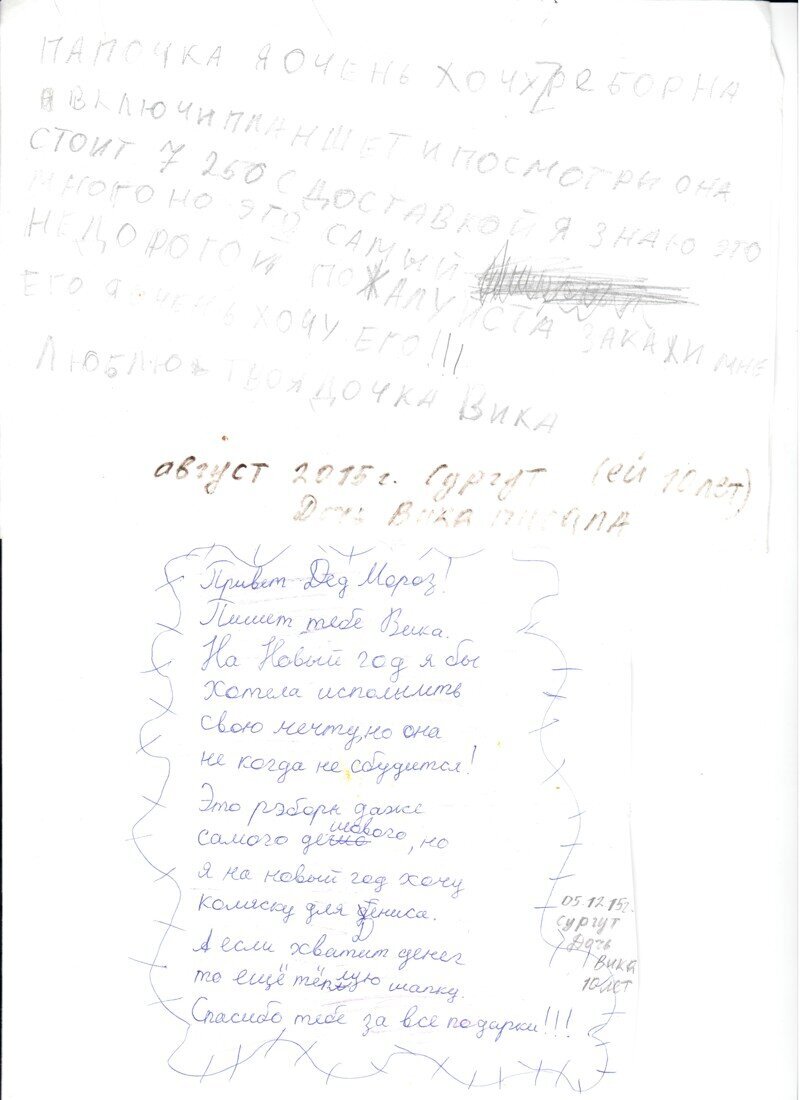 ПАПОЧКА Я ОЧЕНЬ ХОЧУ РеБОРНА
ВКЛЮЧИ ПЛАНШЕТ И ПОСМОТРЫ ОНА
СТОИТ 7 250 С ДОСТАВКОЙ Я ЗНАЮ ЭТО
МНОГО НО ЭТО САМЫЙ
НЕДОРОГОЙ ПОЖАЛУЙСТА ЗАКАЖИ МНЕ
ЕГО Я ОЧЕНЬ ХОЧУ ЕГО!!!
ЛЮБЛЮ ТВОЯ ДОЧКА ВИКА
август 2015г. Сургут (ей 10 лет)
Дочь Вика писала
Привет Дед Мороз!
Пишет тебе Вика.
На Новый год я бы
хотела исполнить
свою мечту, но она
не когда не сбудится!
Это рэборн даже
самого дешового, но
я на новый год хочу
коляску для Дениса.
А если хватит денег
то ещё тёплую шапку.
Спасибо тебе за все подарки!!!
05.12.15г.
Сургут
Дочь
Вика
10 лет